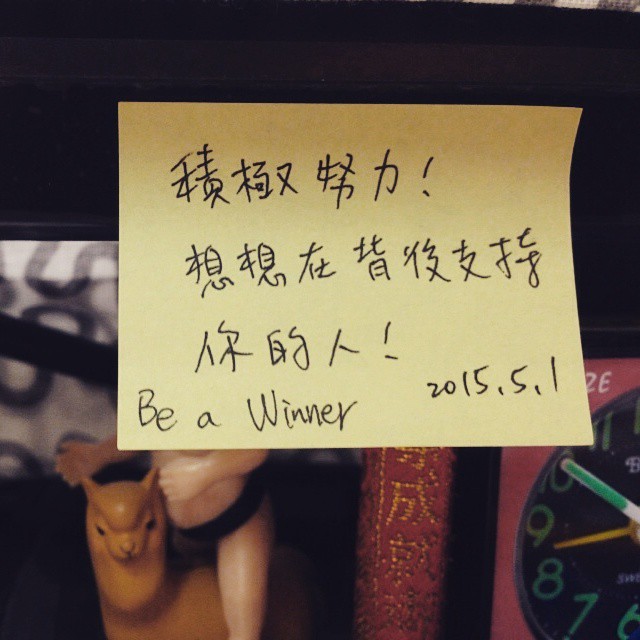 積極努力!
想想在背後支持
你的人!
Be a Winner
2015.5.1
ZE
10
9
8
7
6